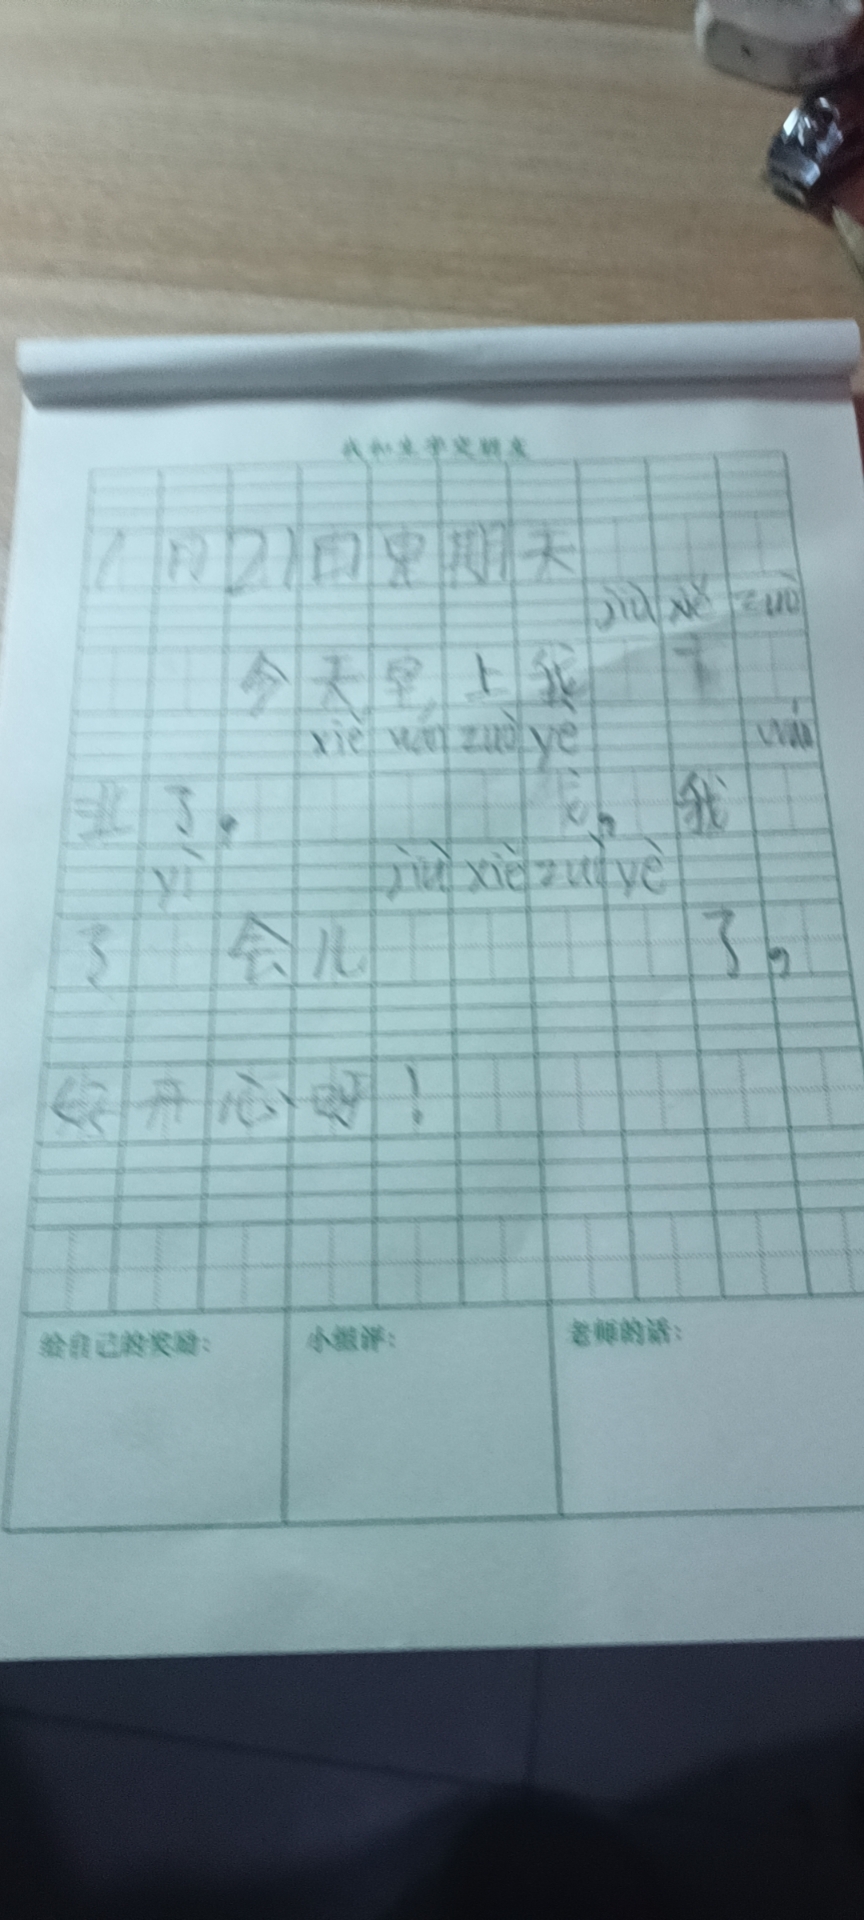 我和生字交朋友
1月21日星期天
jiù xiě zuò
今天早上我
xiě wán zuò yè wán
业了。，我
yì jiù xiě zuò yè
了会儿了，
好开心呀！
给自己的奖励：
小组评：
老师的话：